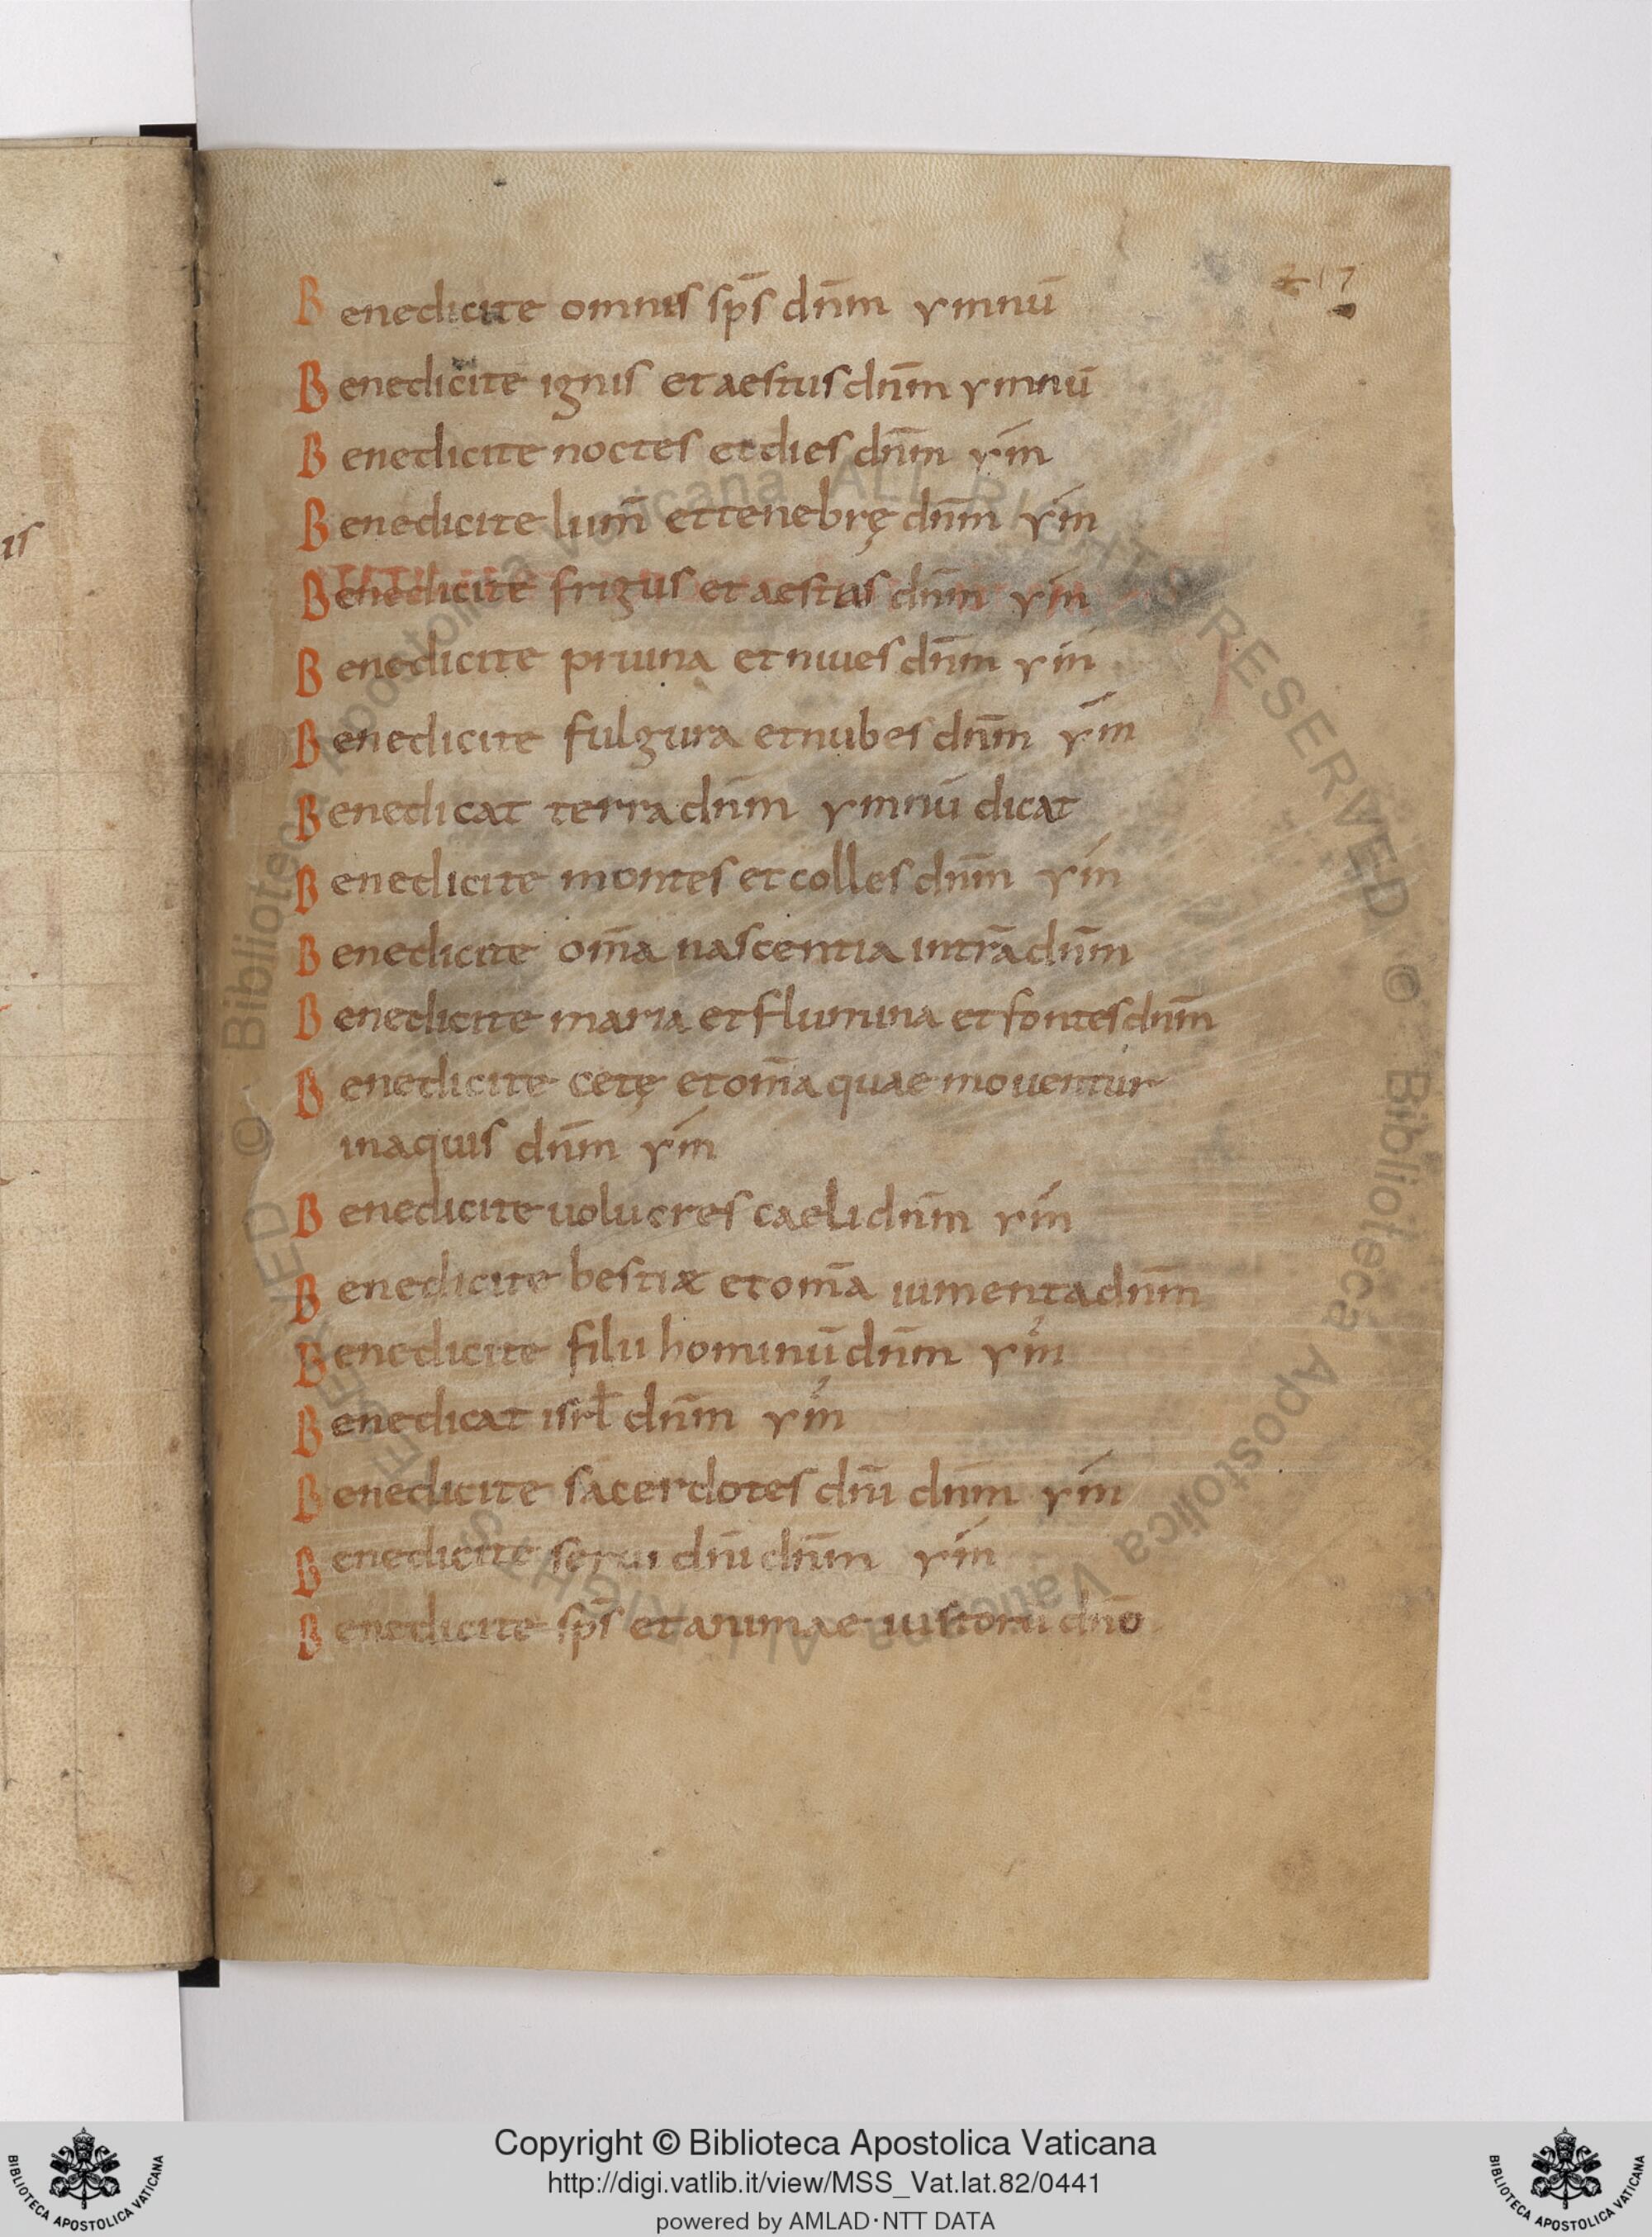 217
Benedicite omnis sp̄s dn̄m ymnū
Benedicite ignis et aestus dn̄m ymnū
Benedicite noctes et dies dn̄m ym̄
Benedicite lum̄ et tenebrę dn̄m ym̄
Benedicite frigus et aestas dn̄m ym̄
Benedicite pruina et niues dn̄m ym̄
Benedicite fulgura et nubes dn̄m ym̄
Benedicat terra dn̄m ymnū dicat
Benedicite montes et colles dn̄m ym̄
Benedicite om̄a nascentia in tr̄a dn̄m
Benedicite maria et flumina et fontes dn̄m
Benedicite cetę et om̄a quae mouentur
in aquis dn̄m ym̄
Benedicite uolucres caeli dn̄m ym̄
Benedicite bestiæ et om̄a iumenta dn̄m
Benedicite filii hominū dn̄m ym̄
Benedicat isrl̄ dn̄m ym̄
Benedicite sacerdotes dn̄i dn̄m ym̄
Benedicite serui dn̄i dn̄m ym̄
Benedicite sp̄s et animae iustorū dn̄o
is
© Biblioteca Apostolica Vaticana ALL RIGHTS RESERVED
© Biblioteca Apostolica Vaticana ALL RIGHTS RESERVED
Copyright © Biblioteca Apostolica Vaticana
http://digi.vatlib.it/view/MSS_Vat.lat.82/0441
powered by AMLAD·NTT DATA
BIBLIOTECA APOSTOLICA VATICANA
BIBLIOTECA APOSTOLICA VATICANA